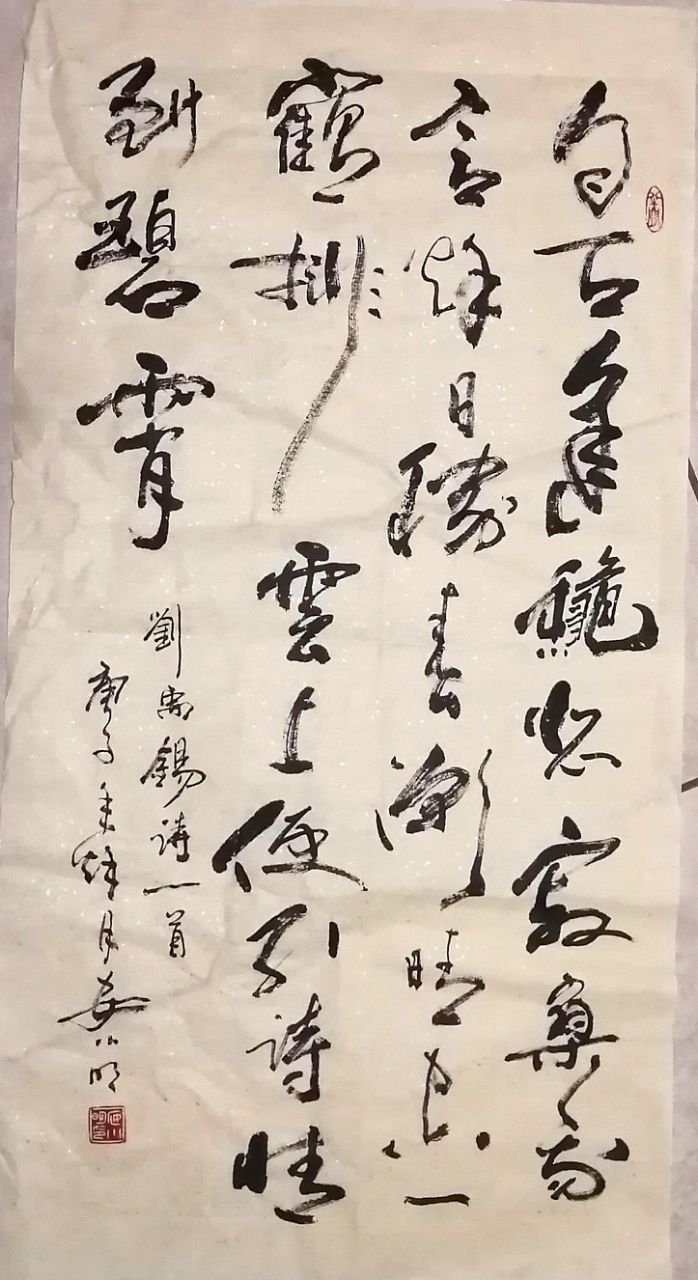 自古逢龝悲寂寞我
言秋日勝春潮晴空一
鶴排雲上便引詩晴
到碧霄
劉禹錫詩一首
庚子年秋月